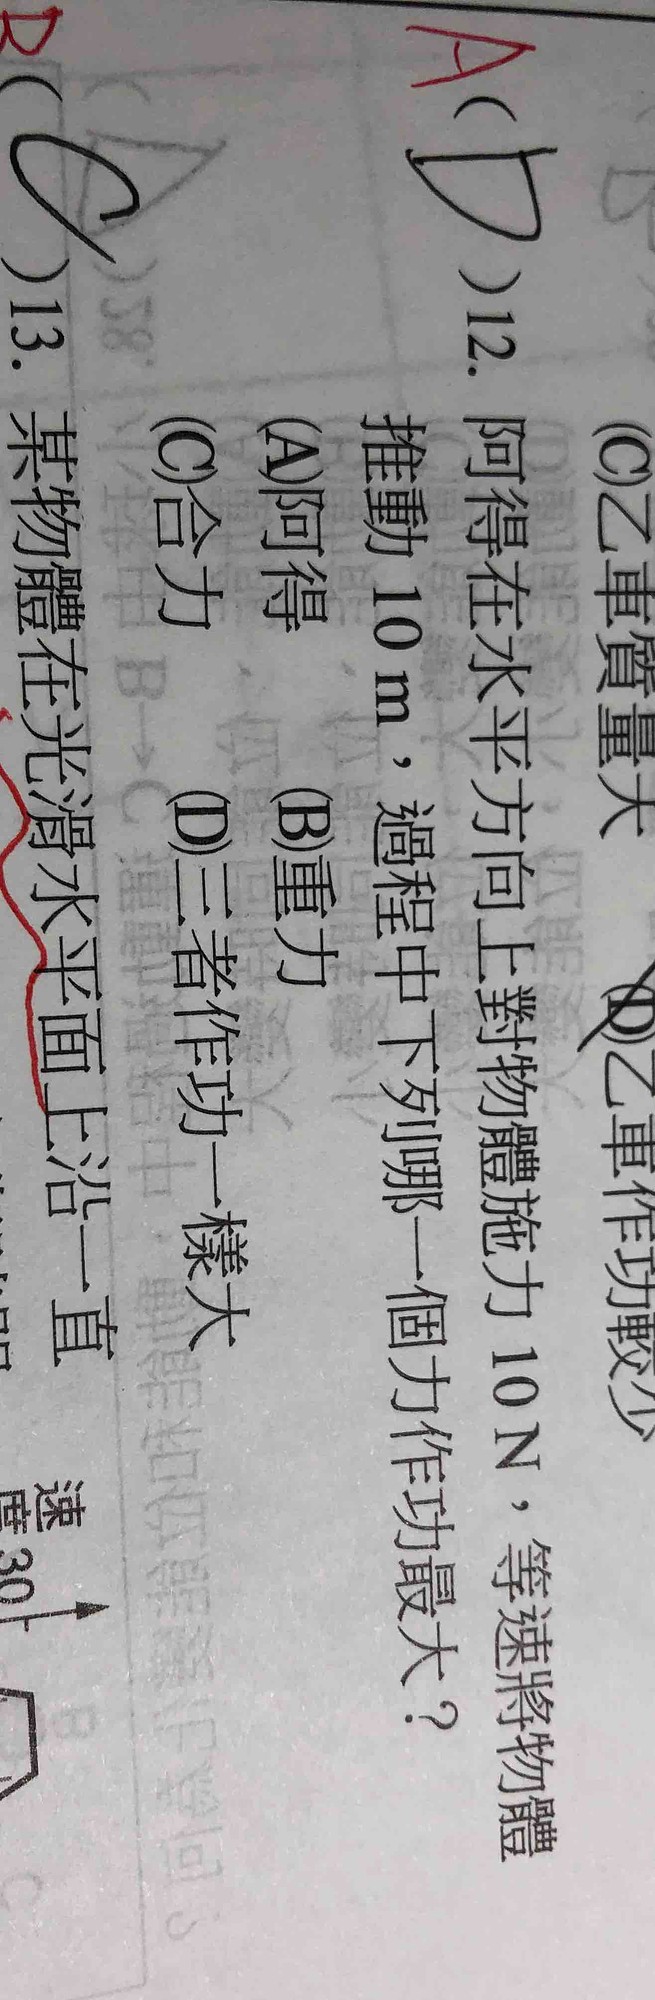 (C)乙車質量大 (D)乙車作功較少
A ( D )12. 阿得在水平方向上對物體施力 10 N，等速將物體
推動 10 m，過程中下列哪一個力作功最大？
(A)阿得 (B)重力
(C)合力 (D)三者作功一樣大
B ( C )13. 某物體在光滑水平面上沿一直
速度
30